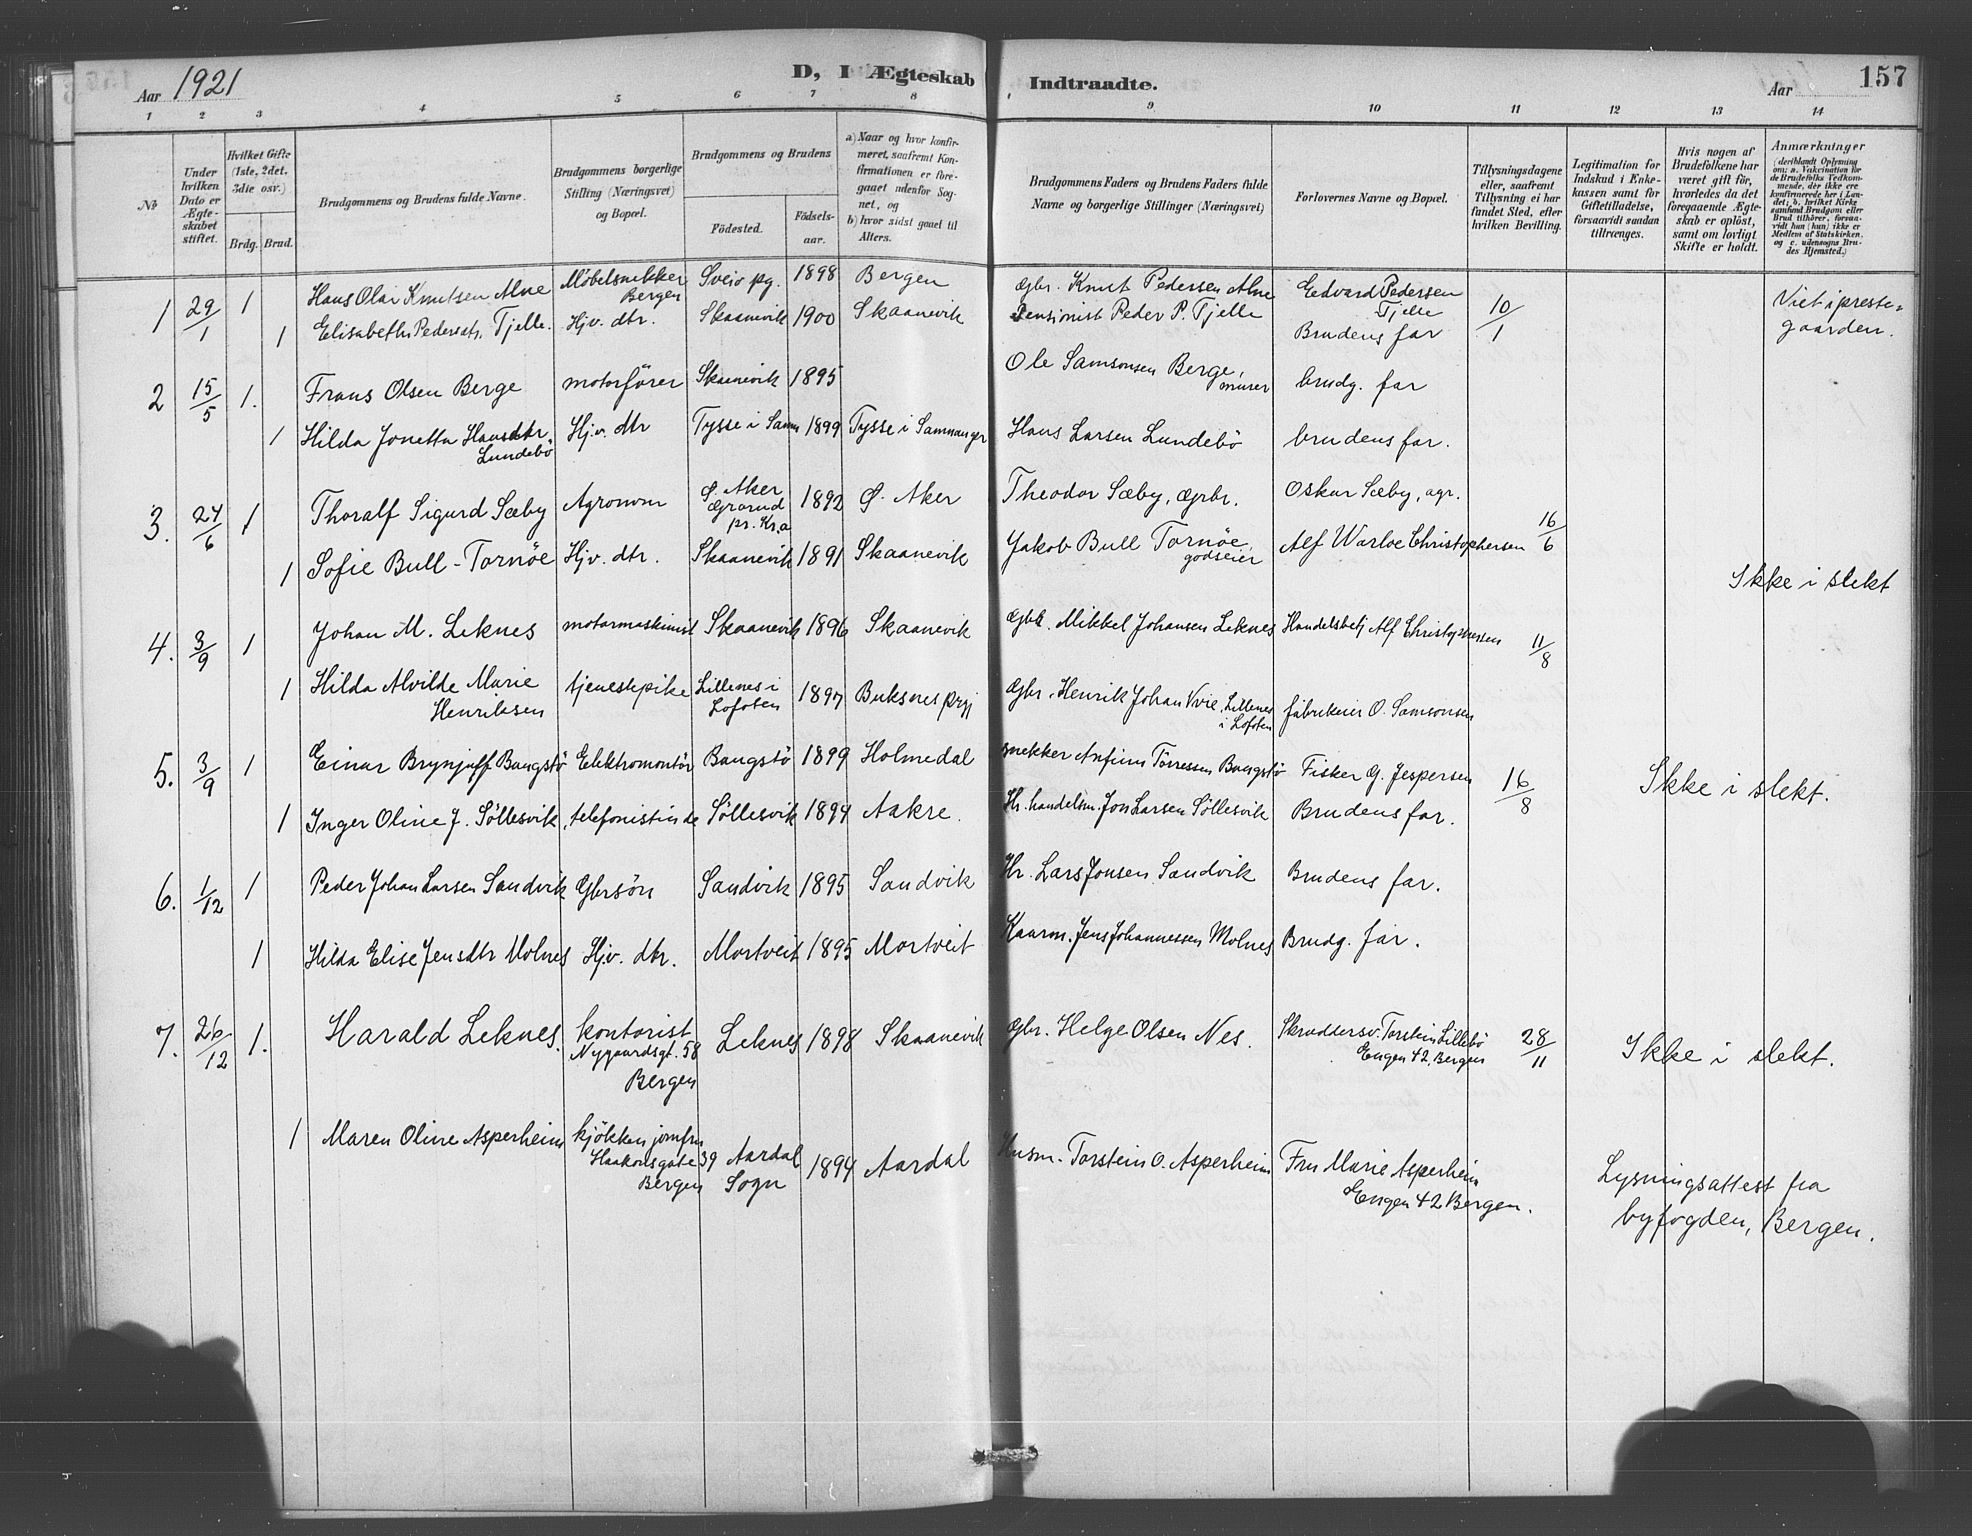 Aar 1921
D, I Ægteskab Indtraadte.
Aar
157
1 2 3 4 5 6 7 8 9 10 11 12 13 14
No
Under hvilken Dato er Ægteskabet stiftet.
Hvilket Gifte (1ste, 2det, 3die osv.)
Brdg. Brud.
Brudgommens og Brudens fulde Navne.
Brudgommens borgerlige Stilling (Næringsvei) og Bopæl.
Brudgommens og Brudens
Fødested. Fødselsaar.
a) Naar og hvor konfirmeret, saafremt Konfirmationen er foregaaet udenfor Sognet, og
b) hvor sidst gaaet til Alters.
Brudgommens Faders og Brudens Faders fulde Navne og borgerlige Stillinger (Næringsvei)
Forlovernes Navne og Bopæl.
Tillysningsdagene eller, saafremt Tillysning ei har fundet Sted, efter hvilken Bevilling.
Legitimation for Indskud i Enkekassen samt for Giftetilladelse, forsaavidt saadan tiltrænges.
Hvis nogen af Brudefolkene har været gift før, hvorledes da det foregaaende Ægteskab er opløst, samt om lovligt Skifte er holdt.
Anmærkninger (deriblandt Oplysning om: a. Vaccination for de Brudefolks Vedkommende, der ikke ere konfirmerede her i Landet; b. hvilket Kirkesamfund Brudgom eller Brud tilhører, forsaavidt han (hun) ikke er Medlem af Statskirken. og c. udensogns Brudes Hjemsted.)
1 29/1 1 Hans Olai Knutsen Alne Møbelsnekker Bergen Sveio pg. 1898 Bergen Gbr. Knut Pedersen Alne Edvard Pedersen Tjelle 10/1 Viet i prestegaarden.
1 Elisabeth Pedersdtr. Tjelle. Hjv. dtr. Skaanevik 1900 Skaanevik Pensionist Peder P. Tjelle Brudens far
2 15/5 1. Frans Olsen Berge motorfører Skaanevik 1895 Ole Samsonsen Berge, murer brudg. far
1 Hilda Jonetta Hansdtr. Lundebö Hjv. dtr Tysse i Samn 1899 Tysse i Samnanger Hans Larsen Lundebö brudens far.
3. 24/6 1 Thoralf Sigurd Sæby Agronom Ø. Aker Grorud pr. Kr.a 1892 Ø. Aker Theodor Sæby, Gbr. Oskar Sæby, agr. 16/6
1 Sofie Bull-Tornöe Hjv. dtr. Skaanevik 1891 Skaanevik Jakob Bull Tornöe, godseier Alf Warloe Christophersen Ikke i slekt
4. 3/9 1 Johan M. Leknes motormaskinist Skaanevik 1896 Skaanevik Gbr. Mikkel Johansen Leknes Handelsbetj Alf Christophersen 11/8
1 Hilda Alvilde Marie Henriksen tjenestepike Lillenes i Lofoten 1897 Buksnes prgj Gbr. Henrik Johan Vvie, Lillenes i Lofoten fabrikeier O. Samsonsen
5. 3/9 1 Einar Brynjulf Bangstö Elektromontör Bangstö 1899 Holmedal snekker Anfinn Törressen Bangstö Fisker G. Jespersen 16/8 Ikke i slekt.
1 Inger Oline J. Söllesvik, telefonistinde Söllesvik 1894 Aakre. Hr. handelsm. Jon Larsen Söllesvik Brudens far.
6. 1/12 1 Peder Johan Larsen Sandvik Gbrsön Sandvik 1895 Sandvik Hr. Lars Jonsen Sandvik Brudens far.
1 Hilda Elise Jensdtr Molnes Hjv. dtr. Mortveit 1895 Mortveit Kaarm. Jens Johannessen Molnes Brudg. far.
7. 26/12 1. Harald Leknes. kontorist Nygaardsgt. 58 Bergen Leknes 1898 Skaanevik Gbr. Helge Olsen Nes. Skræddersv. Torstein Lillebö Engen 42, Bergen 28/11 Ikke i slekt.
1 Maren Oline Asperheim kjökkenjomfru Haakonsgate 39 Bergen Aardal Sogn 1894 Aardal Husm. Torstein O. Asperheim Fru Marie Asperheim Engen 42 Bergen. Lysningsattest fra byfogden, Bergen.